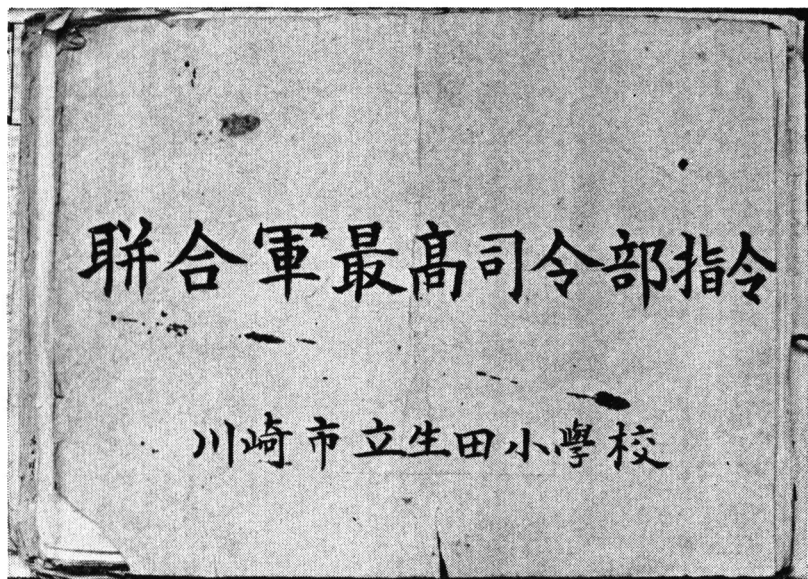 聯合軍最髙司令部指令
川崎市立生田小學校